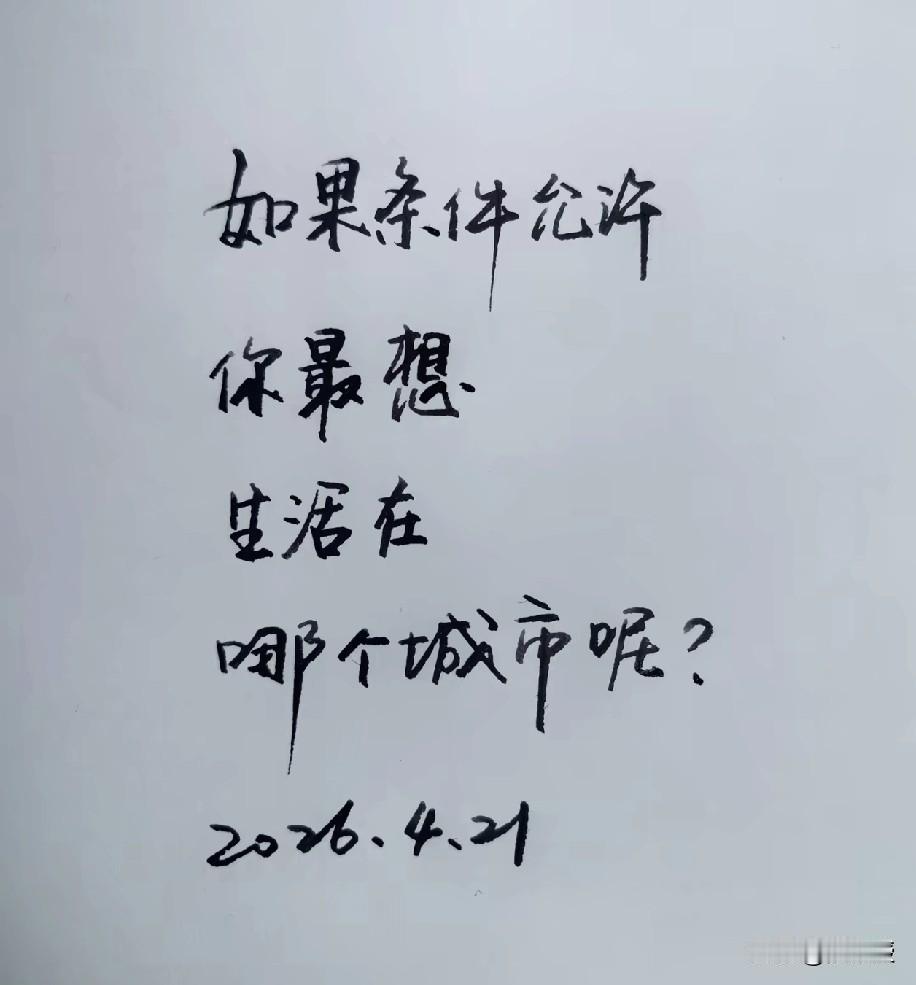 如果条件允许
你最想
生活在
哪个城市呢？
2026.4.21